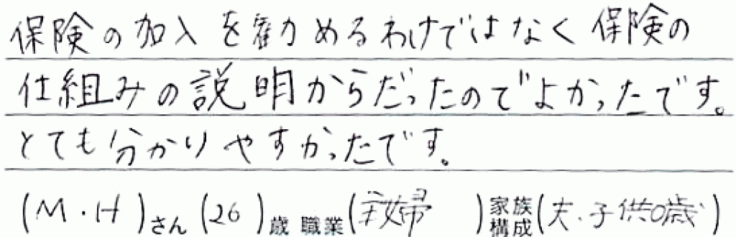 保険の加入を勧めるわけではなく保険の
仕組みの説明からだったのでよかったです。
とても分かりやすかったです。
(M・H)さん(26)歳 職業(主婦)家族構成(夫、子供0歳)